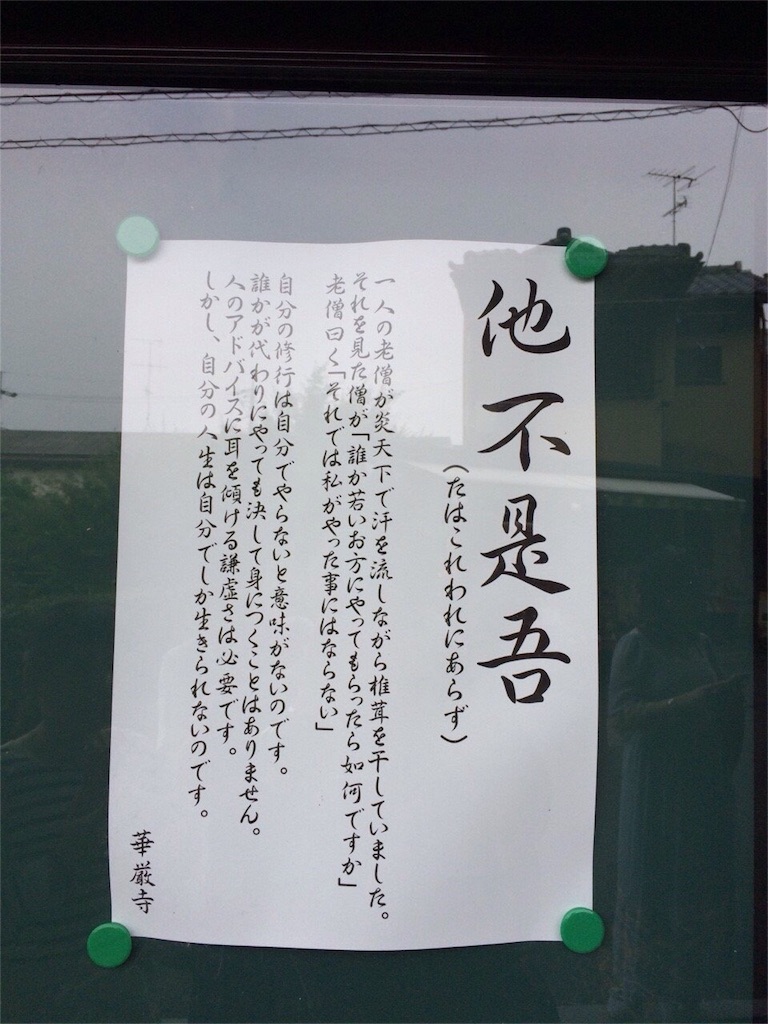 他不是吾
(たはこれわれにあらず)
一人の老僧が炎天下で汗を流しながら椎茸を干していました。
それを見た僧が「誰か若いお方にやってもらったら如何ですか」
老僧曰く「それでは私がやった事にはならない」
自分の修行は自分でやらないと意味がないのです。
誰かが代わりにやっても決して身につくことはありません。
人のアドバイスに耳を傾ける謙虚さは必要です。
しかし、自分の人生は自分でしか生きられないのです。
華厳寺